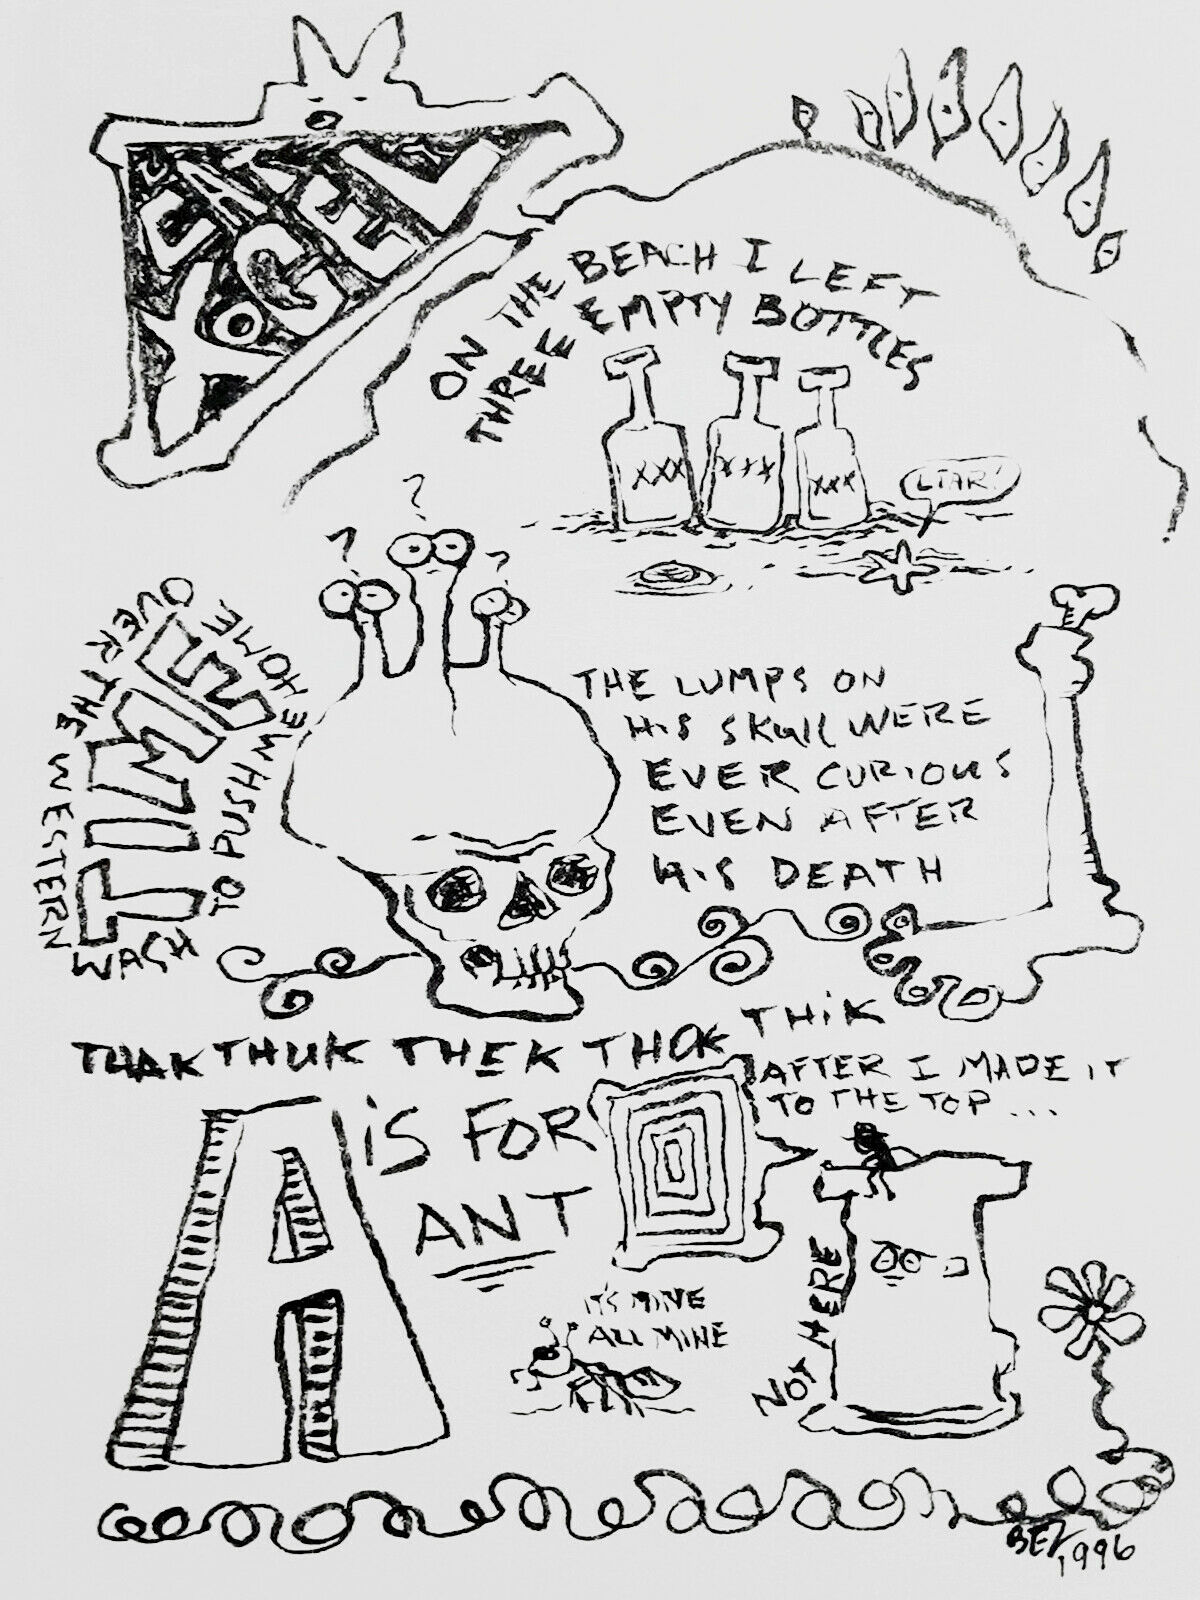 ON THE BEACH I LEFT
THREE EMPTY BOTTLES
XXX
XXX
XXX
LIAR!
?
?
?
OVER THE WESTERN
TIME
WASH
TO PUSH ME HOME
THE LUMPS ON
HIS SKULL WERE
EVER CURIOUS
EVEN AFTER
HIS DEATH
THAK THUK THEK THOK THIK
AFTER I MADE IT
TO THE TOP ...
A IS FOR
ANT
IT'S MINE
ALL MINE
NOT HERE
BEZ
1996